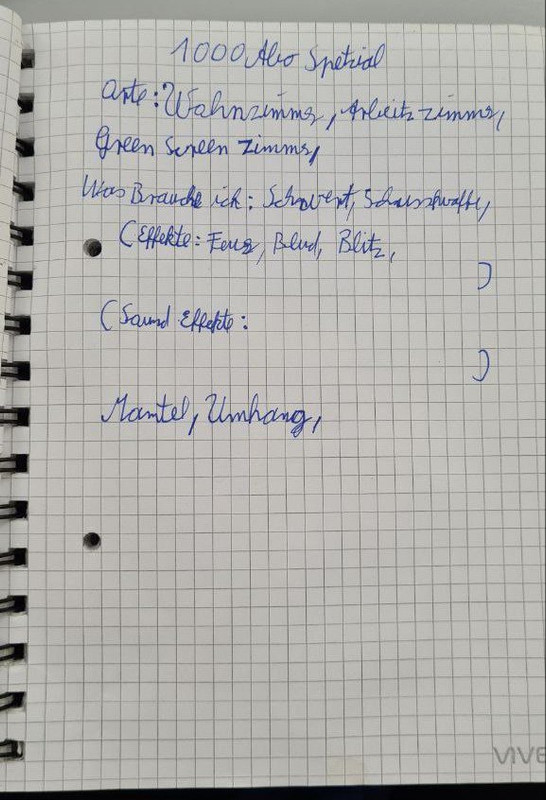 1000 Abo Spetzial
Orte: Wohnzimmer, Arbeitzzimmer,
Green Screen zimmer,
Was Brauche ich: Schwert, Schusswaffe,
(Effekte: Feuer, Blud, Blitz,
)
(Sound Effekte:
)
Mantel, Umhang,
VIVE